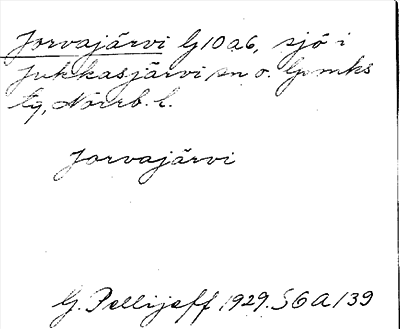 Jorvajärvi G10a6, sjö i
Jukkasjärvi sn o. lpmks
tg, Norrb. l.
Jorvajärvi
G. Pellijeff 1929. S6A139